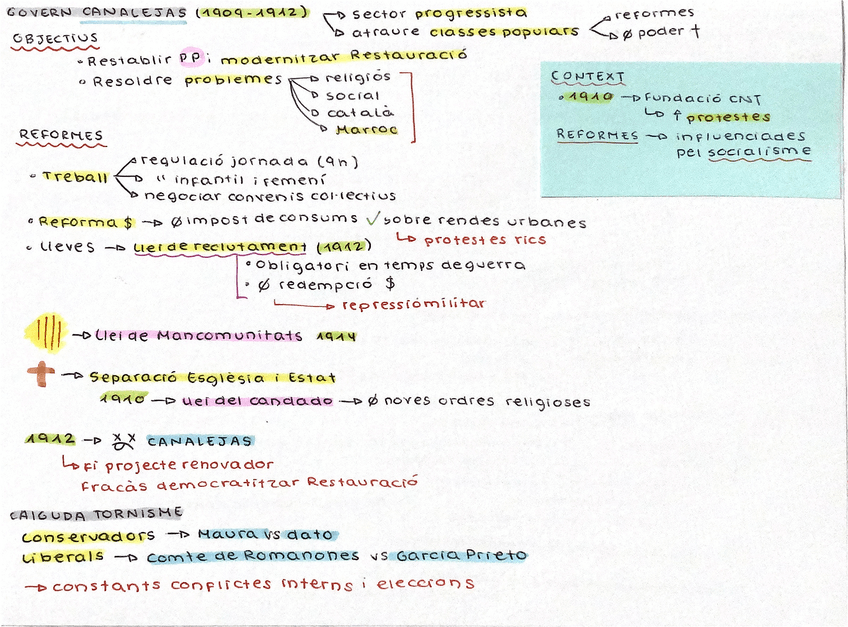 GOVERN CANALEJAS (1909-1912) → sector progressista
→ atraure classes populars → reformes
→ Ø poder †
OBJECTIUS
• Restablir PP i modernitzar Restauració
• Resoldre problemes → religiós
→ social
→ català
→ Marroc
CONTEXT
• 1910 → Fundació CNT
↳ ↑ protestes
REFORMES → influenciades
pel socialisme
REFORMES
• Treball → regulació jornada (9h)
→ " infantil i femení
→ negociar convenis col·lectius
• Reforma $ → Ø impost de consums ✓ sobre rendes urbanes
↳ protestes rics
• Lleves → Llei de reclutament (1912)
• Obligatori en temps de guerra
• Ø redempció $
→ repressió militar
→ Llei de Mancomunitats 1914
→ Separació Església i Estat
1910 → Llei del candado → Ø noves ordres religioses
1912 → XX CANALEJAS
↳ Fi projecte renovador
Fracàs democratitzar Restauració
CAIGUDA TORNISME
Conservadors → Maura vs dato
Liberals → Comte de Romanones vs Garcia Prieto
→ constants conflictes interns i eleccions